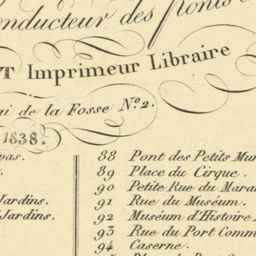 onducteur des ponts
T Imprimeur Libraire
ai de la Fosse N.º 2.
1838.
pas.
Jardins.
Jardins.
88 Pont des Petits Mur
89 Place du Cirque.
90 Petite Rue du Mara
91 Rue du Muséum.
92 Muséum d'Histoire
93 Rue du Port Comm
94 Caserne.